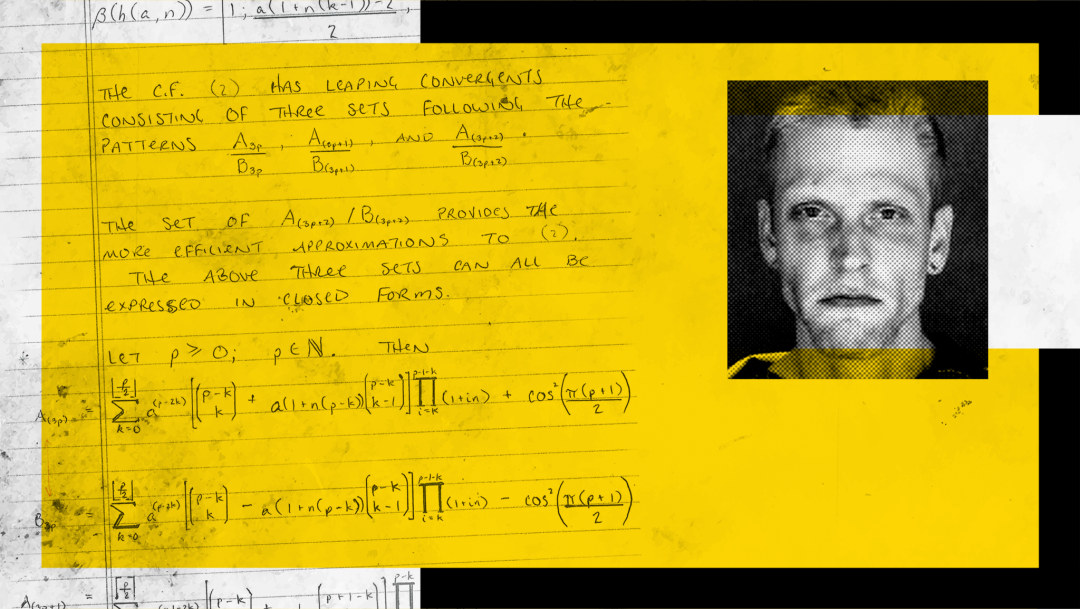 β(h(a,n)) = [1; a(1+n(k-1))-2,
2
THE C.F. (2) HAS LEAPING CONVERGENTS
CONSISTING OF THREE SETS FOLLOWING THE
PATTERNS A₃ₚ/B₃ₚ, A₍₃ₚ₊₁₎/B₍₃ₚ₊₁₎, AND A₍₃ₚ₊₂₎/B₍₃ₚ₊₂₎.
THE SET OF A₍₃ₚ₊₂₎/B₍₃ₚ₊₂₎ PROVIDES THE
MORE EFFICIENT APPROXIMATIONS TO (2).
THE ABOVE THREE SETS CAN ALL BE
EXPRESSED IN CLOSED FORMS.
LET p ⩾ 0; p ∈ ℕ. THEN
A₍₃ₚ₎ = ∑_{k=0}^{⌊p/2⌋} a^{(p-2k)} [(p-k choose k) + a(1+n(p-k))(p-k choose k-1)] ∏_{i=k}^{p-1-k} (1+in) + cos²(π(p+1)/2)
B₃ₚ = ∑_{k=0}^{⌊p/2⌋} a^{(p-2k)} [(p-k choose k) - a(1+n(p-k))(p-k choose k-1)] ∏_{i=k}^{p-1-k} (1+in) - cos²(π(p+1)/2)
A₍₃ₚ₊₁₎ =